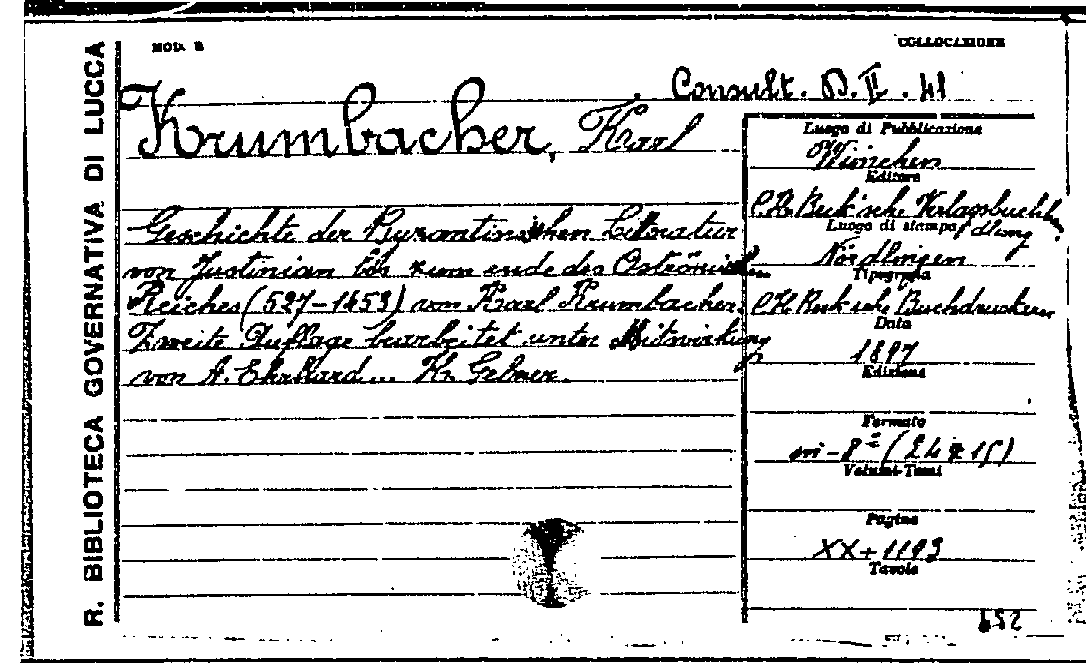 R. BIBLIOTECA GOVERNATIVA DI LUCCA
MOD. B
COLLOCAZIONE
Consult. D. II. 41
Krumbacher, Karl
Geschichte der Byzantinischen Litteratur
von Justinian bis zum ende des Oströmischen
Reiches (527-1453) von Karl Krumbacher.
Zweite Auflage bearbeitet unter Mitwirkung
von A. Ehrhard... H. Gelzer.
Luogo di Pubblicazione
München
Editore
C. H. Beck'sche Verlagsbuchhandlung
Luogo di stampa
Nördlingen
Tipografia
C. H. Beck'sche Buchdruckerei
Data
1897
Edizione
Formato
in-8º (24x15)
Volumi-Tomi
Pagine
XX+1193
Tavole
652